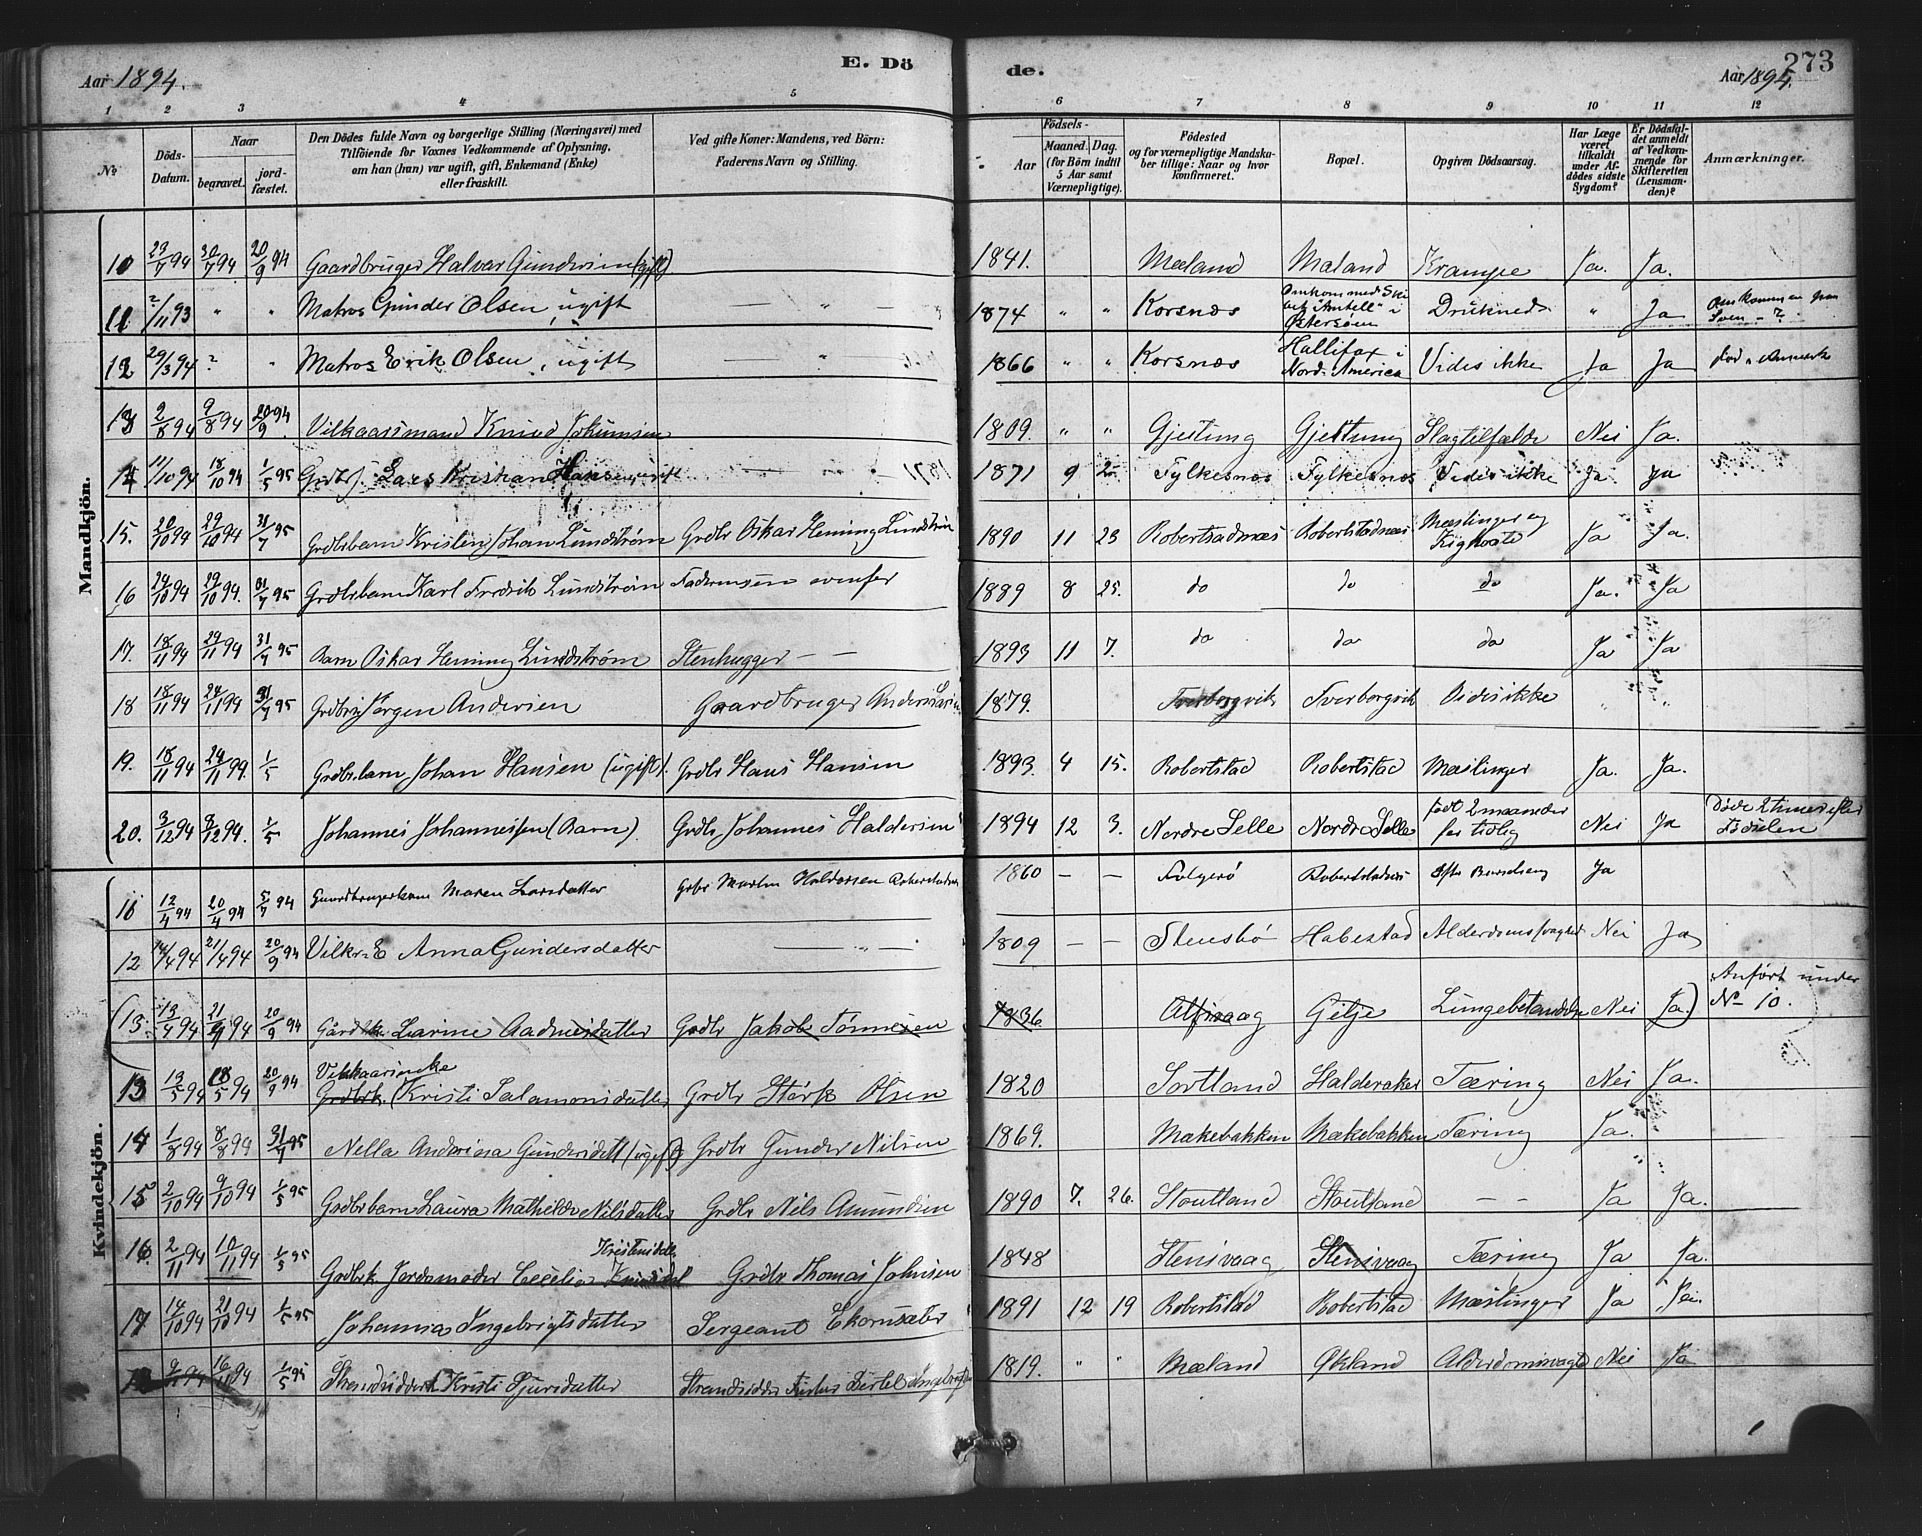 Aar 1894.
E. Dö
de.
273
Aar 1894.
1 2 3 4 5 6 7 8 9 10 11 12
No
Döds-Datum.
Naar
begravet.
jord-fæstet.
Den Dödes fulde Navn og borgerlige Stilling (Næringsvei) med
Tilföiende for Voxnes Vedkommende af Oplysning,
om han (hun) var ugift, gift, Enkemand (Enke)
eller fraskilt.
Ved gifte Koner: Mandens, ved Börn:
Faderens Navn og Stilling.
Födsels-
Aar
Maaned. Dag.
(for Börn indtil
5 Aar samt
Værnepligtige).
Födested
og for værnepligtige Mandska-
ber tillige: Naar og hvor
konfirmeret.
Bopæl.
Opgiven Dödsaarsag.
Har Læge
været
tilkaldt
under Af-
dödes sidste
Sygdom?
Er Dödsfal-
det anmeldt
af Vedkom-
mende for
Skifteretten
(Lensman-
den)?
Anmærkninger.
Mandkjön.
10 29/7 94 30/7 94 20/9 94 Gaardbruger Halvar Gundersen (gift) 1841. Mæland Mæland Krampe Ja. Ja.
11 2/11 93 " " Matros Gunder Olsen, ugift — " 1874 " " Korsnæs Omkom med Ski Østersøen Druknede " Ja
12 29/3 94 ? " Matros Erik Olsen, ugift — " 1866 " " Korsnæs Hallifax i Nord-America Vides ikke Ja Ja
13 2/8 94 9/8 94 20/9 94 Vilkaarsmand Knud 1809. " " Gjestung Gjestung Slagtilfælde Nei Ja.
14 11/10 94 18/10 94 1/5 95 Lars Kristian Hansen, ugift 1871 9 Fylkesnæs Fylkesnæs Vides ikke Ja Ja
15. 20/10 94 29/10 94 31/7 95 Grdbrbarn Kristen Johan Lundstrøm Grdbr Oskar Heming Lundstrøm 1890 11 23 Robertsadnæs Robertstadnæs Mæslinger og Kighoste Ja Ja.
16 24/10 94 29/10 94. 31/7 95 Grdbrbarn Karl Fredrik Lundstrøm ovenfor 1889 8 25. do do do Ja. Ja
17. 18/11 94 29/11 94 31/7 95 Barn Oskar Heming Lundstrøm Stenhugger — — 1893 11 7. do do do Ja Ja
18 18/11 94 24/11 94 31/7 95 Jørgen Andersen Gaardbruger Anders 1879. Tverborgvik Tverborgvik Vides ikke " "
19. 18/11 94 24/11 99. 1/5 Grdbrbarn Johan Hansen (ugift). Grdbr Hans Hansen 1893. 4 15. Robertstad Robertstad Mæslinger Ja. Ja.
20. 3/12 94 8/12 94. 1/5 Johannes Johannessen (Barn). Grdbr Johannes Haldorsen 1894 12 3. Nordre Selle Nordre Selle født 2 maaneder for tidlig Nei Ja Døde 2 timer efter Fødselen
Kvindekjön.
11 12/4 94 20/4 94 5/7 94 Gaardbrugerkone Maren Larsdatter Grbr Martin Haldorsen 1860 — — Folgerø Robertstadnæs Efter Barselseng Ja
12 14/4 94 21/4 94 20/9 94 Vilkr. E Anna Gundersdatter — " — 1809 — — Stensbø Habestad Alderdomssvaghed Nei Ja
(13. 13/4 94 21/4 94 20/9 94 Larine Aadnesdatter Grdbr Jakob Tønnesen 1836 Alfsvaag Gilje Lungebetændelse Nei Ja.) Anført under No 10.
13 13/5 94 18/5 94 20/9 94 Vilkaarsenke Grdbrk. Kristi Salamonsdatter Grdbr Størk Olsen 1820 Sortland Haldoraker Tæring Nei Ja.
14 1/8 94 8/8 99 31/7 95 Nella Andorina Gundersdatt (ugift) Grdbr Gunder Nilsen 1869. Mækebakken Mækebakken Tæring Ja.
15 2/10 94 9/10 94 1/5 95 Grdbrbarn Laura Mathilde Nilsdatter Grdbr Nils Amundsen 1890 7. 26. Stoutland Stoutland — — Ja Ja.
16. 2/11 94 10/11 94 1/5 95 Grdbrk Jordemoder Cecelia Kristensdtr Grdbr Thomas Johnsen 1848 Stensvaag Stensvaag Tæring Ja Ja.
17 14/10 94 21/10 94 1/5 95 Johanna Ingebrigtsdatter Sergeant Ekornsæter 1891 12 19 Robertstad Robertstad Mæslinger Ja Nei.
16/11 94 1/5 95 Kristi Sjursdatter Strandsidder 1819. " " Mæland Økland Nei Ja